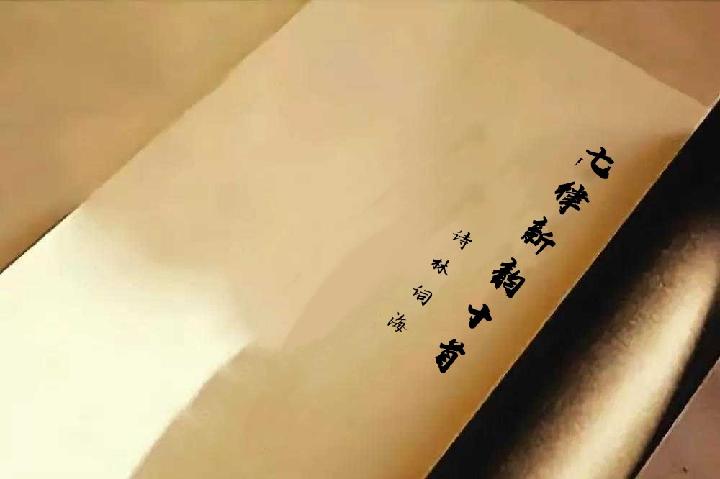 七律新韵十首
诗林词海